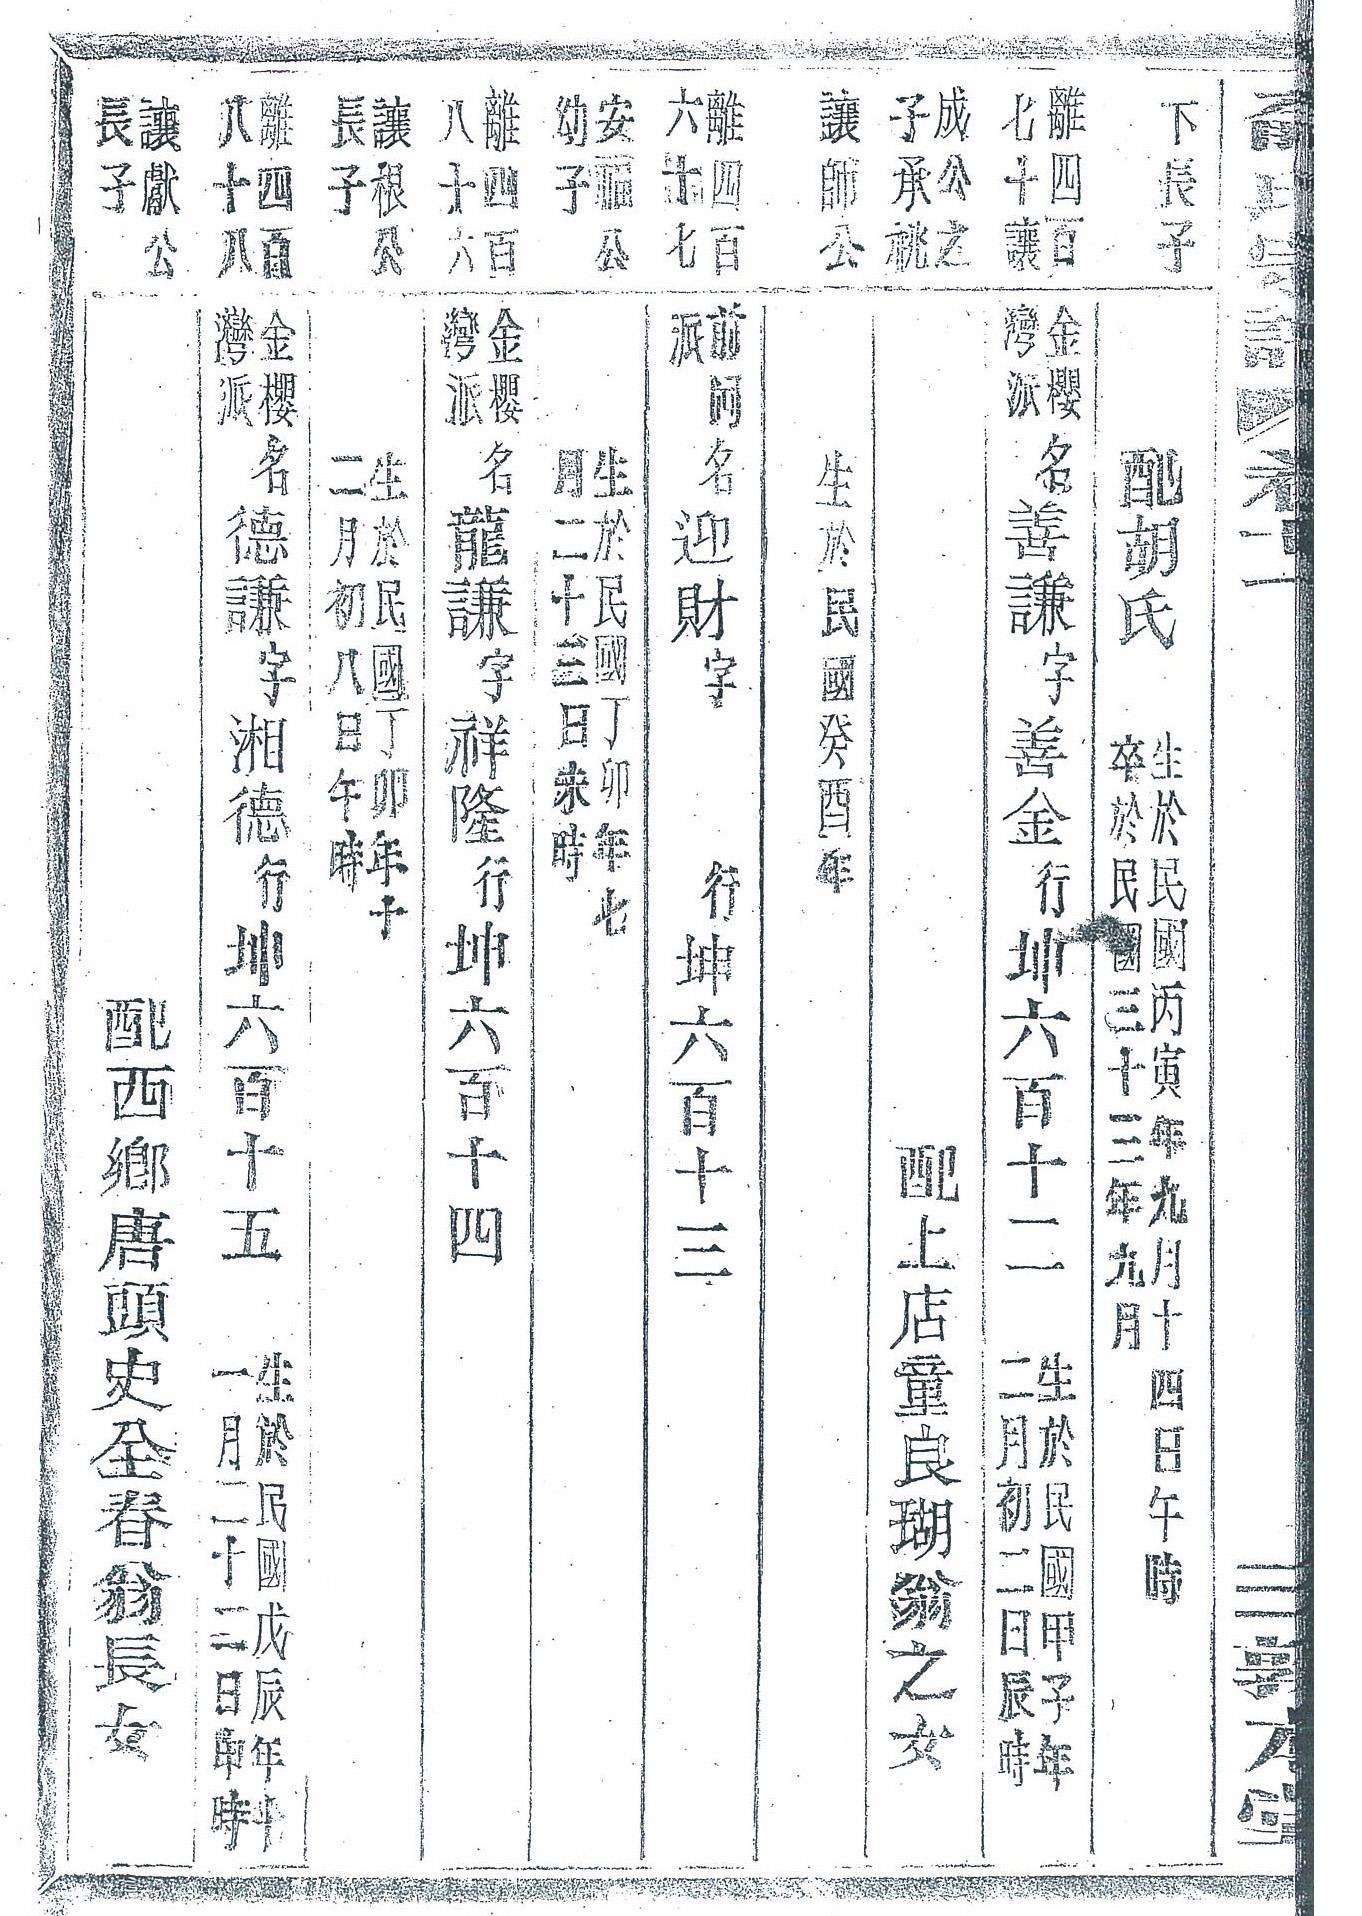 氏宗譜 卷十一
三 敦本堂
下長子
配胡氏
生於民國丙寅年九月十四日午時
卒於民國三十三年九月
離四百
七十讓
金櫻
灣派
名善謙字善金行坤六百十二
生於民國甲子年
二月初二日辰時
成公之
子承祧
配上店童良瑚翁之女
讓師公
生於民國癸酉年
離四百
六十七
前同
派
名迎財字 行坤六百十三
安福公
幼子
生於民國丁卯年七
月二十三日未時
離四百
八十六
金櫻
灣派
名龍謙字祥隆行坤六百十四
讓根公
長子
生於民國丁卯年十
二月初八日午時
離四百
八十八
金櫻
灣派
名德謙字湘德行坤六百十五
生於民國戊辰年十
一月二十二日申時
讓獻公
長子
配西鄉唐頭史全春翁長女